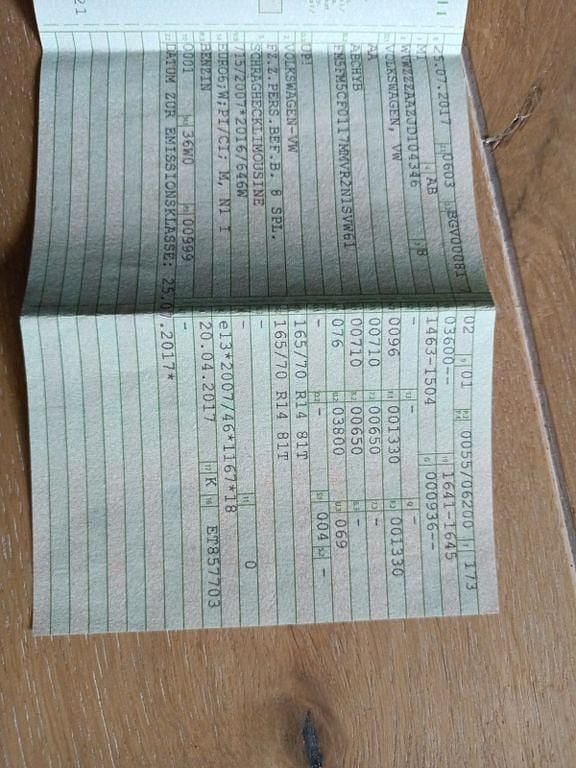 25.07.2017 0603 BGV000817
M1 AB 8
WVWZZZAAZJD104346
VOLKSWAGEN, VW
AA
ABCHYB
FM5FM5CP0117MMVR2N1SVW61
UP!
VOLKSWAGEN-VW
FZ.Z.PERS.BEF.B. 8 SPL.
SCHRAEGHECKLIMOUSINE
715/2007*2016/646W
EURO6;W;PI/CI; M, N1 I
BENZIN
0001 36W0 00999
DATUM ZUR EMISSIONSKLASSE: 25.07.2017*
02 01 0055/06200 173
03600-- 1641-1645
1463-1504 000936--
- - -
0096 001330 001330
00710 00650 -
00710 00650 -
076 03800 069
- - 004 -
165/70 R14 81T
165/70 R14 81T
-
- 0
e13*2007/46*1167*18
20.04.2017 K ET857703
-